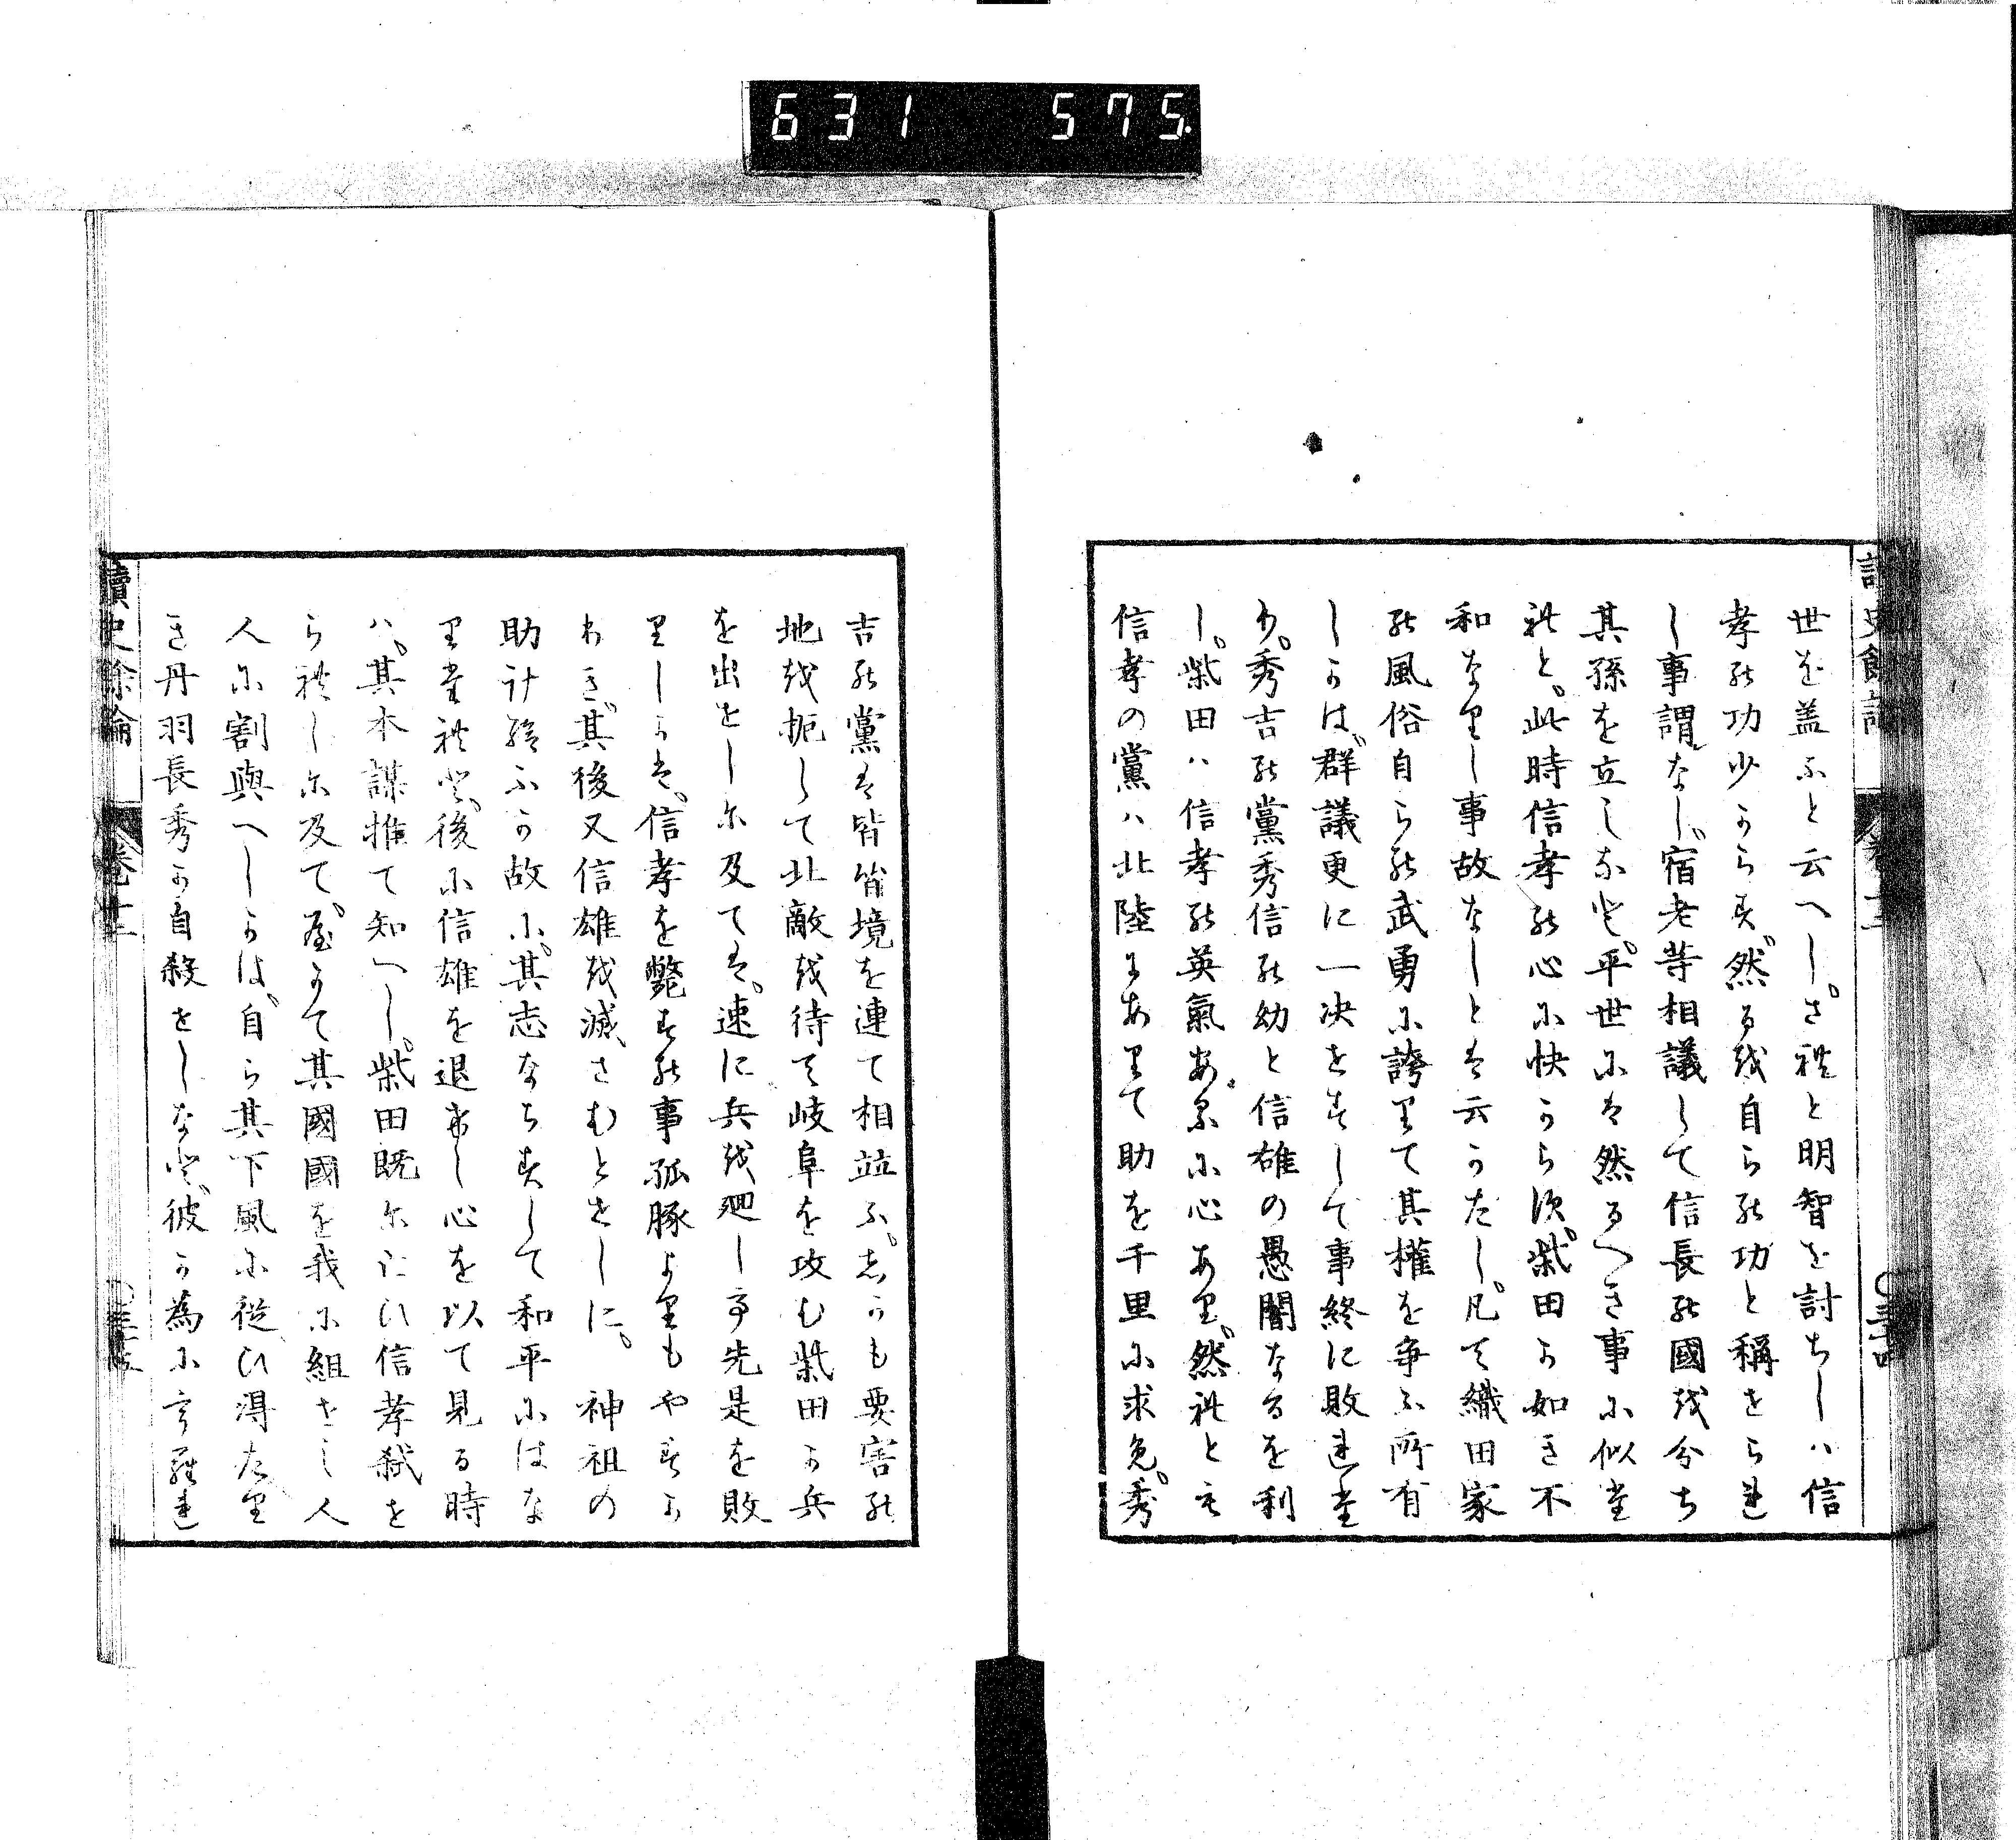 631 575
讀史餘論 卷十二 〇三十四
世を盖ふと云へし。され𪜈明智を討ちしハ信
孝の功少からす。然るを自らの功と稱せられ
し事謂なし。宿老等相議して信長の國を分ち
其孫を立しなと。平世には然るへき事に似た
れと。此時信孝の心に快からす。柴田か如き不
和なりし事故なしとは云かたし。凡て織田家
の風俗自らの武勇に誇りて其權を爭ふ所有
しかは。群議更に一决せすして事終に敗れた
り。秀吉の黨秀信の幼と信雄の愚闇なるを利
し。柴田ハ信孝の英氣あるに心あり。然れとも
信孝の黨ハ北陸にありて助を千里に求免。秀
吉の黨は皆皆境を連て相並ふ。しかも要害の
地を扼して北敵を待て岐阜を攻む柴田か兵
を出せしに及ては。速に兵を廻し亭先是を敗
りしかは。信孝を斃すの事孤豚よりもやすか
りき。其後又信雄を滅さむとせしに。神祖の
助計給ふか故に。其志ならすして和平にはな
りたれと。後に信雄を退けし心を以て見る時
ハ。其本謀推て知へし。柴田既に亡ひ信孝弑せ
られしに及て。屋かて其國國を我に組せし人
人に割與へしかは。自ら其下風に從ひ得たり
き丹羽長秀か自殺せしなと。彼か為に亨羅れ
讀史餘論 卷十二 〇三十五